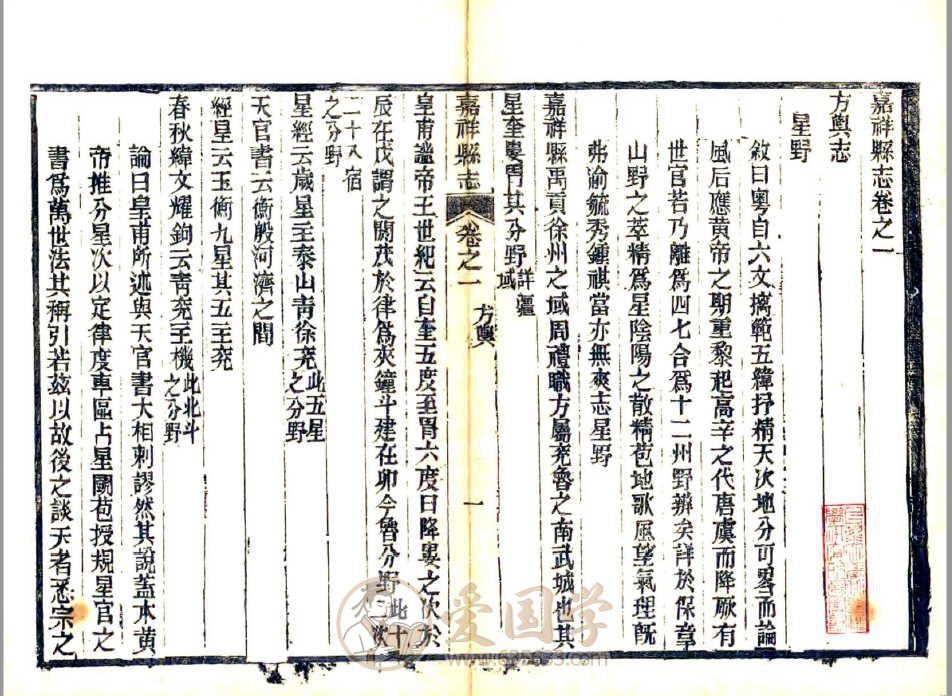 嘉祥縣志卷之一
方輿志
星野
敘曰粵自六文摛範五緯抒精天次地分可畧而論
風后應黃帝之期重黎起高辛之代唐虞而降厥有
世官若乃離爲四七合爲十二州野辨矣詳於保章
山野之萃精爲星陰陽之散精苞地歌風望氣理旣
弗渝毓秀鍾祺當亦無爽志星野
嘉祥縣禹貢徐州之域周禮職方屬兖魯之南武城也其
星奎婁胃其分野詳疆域
嘉祥縣志 卷之一 方輿 一
皇甫謐帝王世紀云自奎五度至胃六度曰降婁之次於
辰在戊謂之閹茂於律爲夾鐘斗建在卯今魯分野此十二次
二十八宿之分野
星經云歲星主泰山靑徐兖此五星之分野
天官書云衡殷河濟之間
經星云玉衡九星其五主兖
春秋緯文耀鉤云靑兖主機此北斗之分野
論曰皇甫所述與天官書大相刺謬然其說蓋本黃
帝推分星次以定律度專區占星圖苞授規星官之
書爲萬世法其稱引若兹以故後之談天者悉宗之
爱国学
www.685563.com